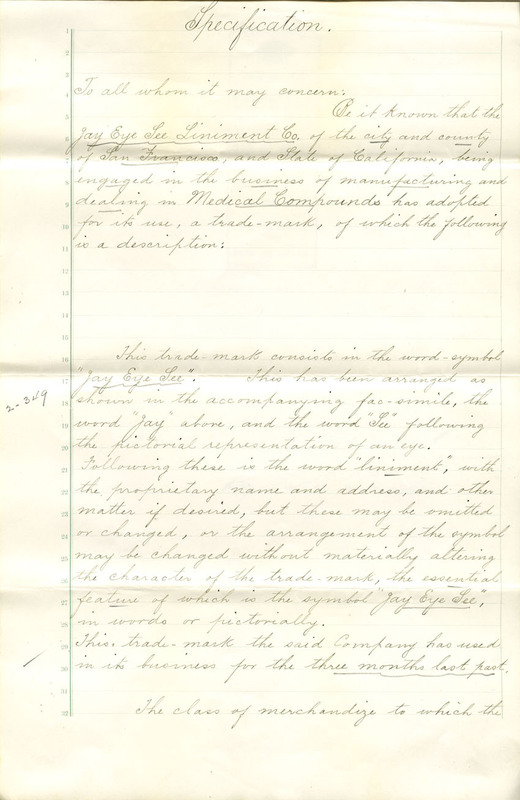 Specification.
To all whom it may concern:
Be it known that the
Jay Eye See Liniment Co. of the city and county
of San Francisco, and State of California, being
engaged in the business of manufacturing and
dealing in Medical Compounds has adopted
for its use, a trade-mark, of which the following
is a description:
This trade-mark consists in the word-symbol
"Jay Eye See". This has been arranged as
shown in the accompanying fac-simile, the
2-349
word "Jay" above, and the word "See" following
the pictorial representation of an eye.
Following these is the word "liniment", with
the proprietary name and address, and other
matter if desired, but these may be omitted
or changed, or the arrangement of the symbol
may be changed without materially altering
the character of the trade-mark, the essential
feature of which is the symbol "Jay Eye See",
in words or pictorially.
This trade-mark the said Company has used
in its business for the three months last past.
The class of merchandize to which the
1
2
3
4
5
6
7
8
9
10
11
12
13
14
15
16
17
18
19
20
21
22
23
24
25
26
27
28
29
30
31
32